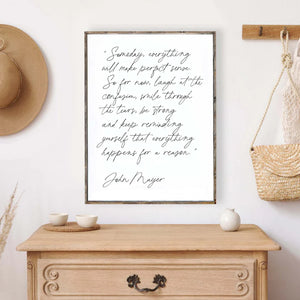 " Someday, everything
will make perfect sense.
So for now, laugh at the
confusion, smile through
the tears, be strong
and keep reminding
yourself that everything
happens for a reason. "
John Mayer